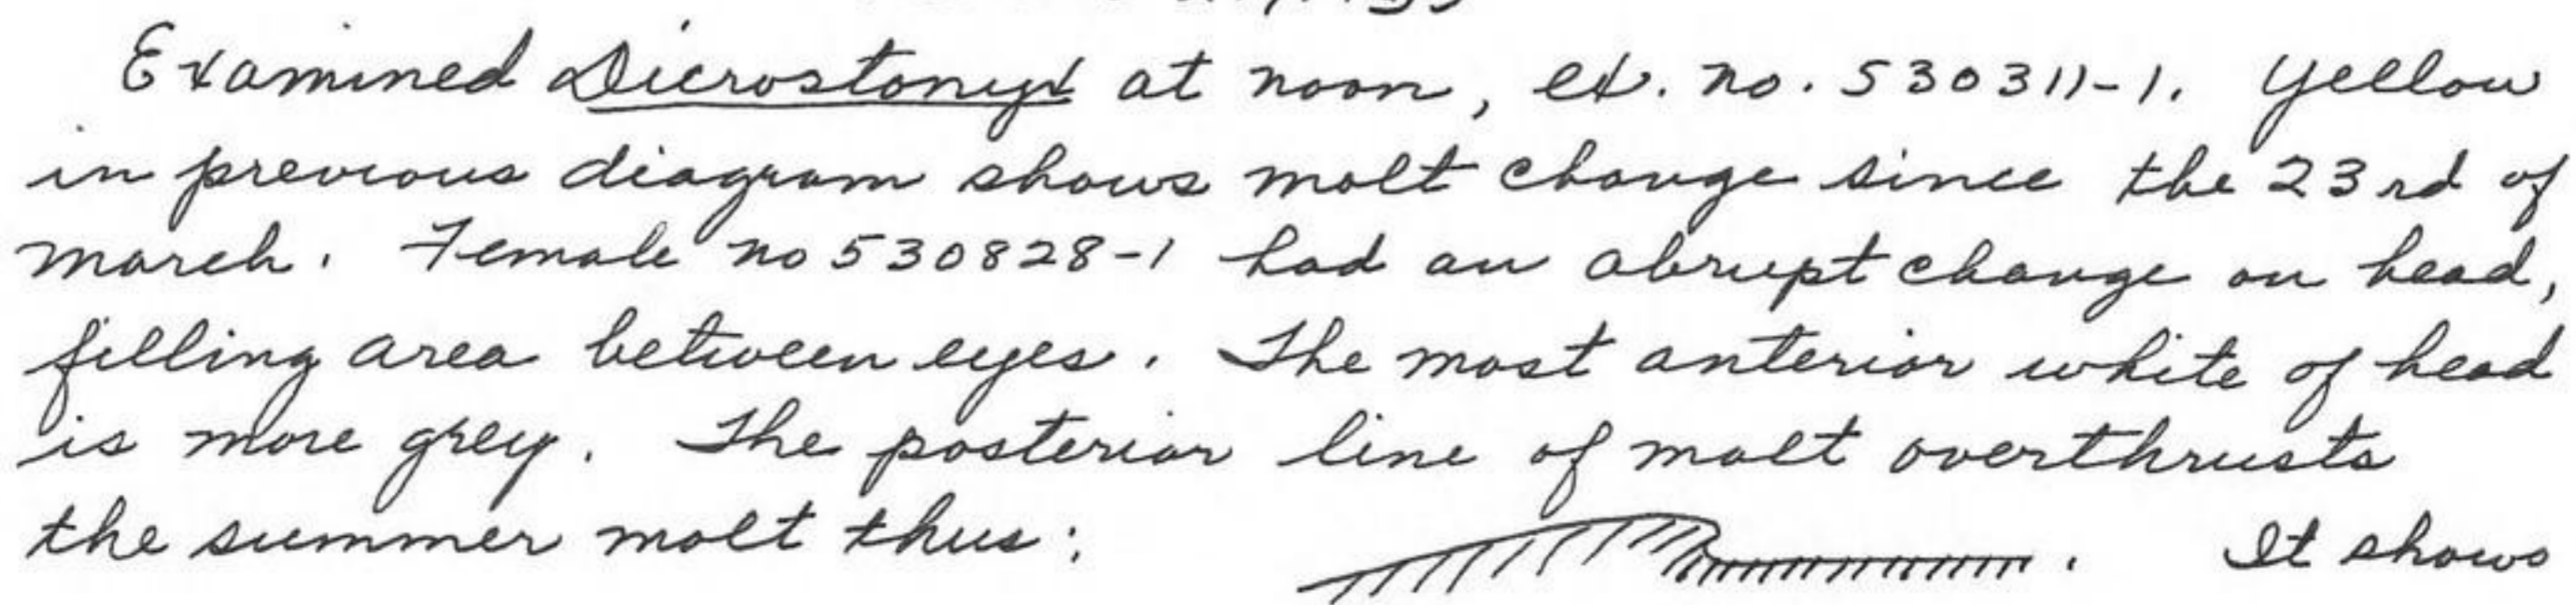 Examined Dicrostonyx at noon, ex. no. 530311-1. Yellow
in previous diagram shows molt change since the 23rd of
March. Female no 530828-1 had an abrupt change on head,
filling area between eyes. The most anterior white of head
is more grey. The posterior line of molt overthrusts
the summer molt thus: . It shows